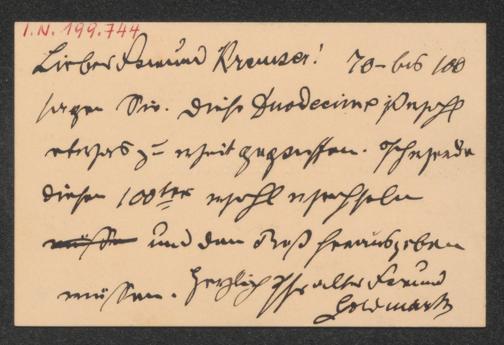 I.N. 199.744
Lieber Freund Kremser! 70 – bis 100
sagen Sie. Diese Duodecime ist wohl
etwas zu weit gegriffen. Ich werde
diesen 100ter wohl wechseln
müssen und den Rest herausgeben
müssen. Herzlich Ihr alter Freund
Goldmark